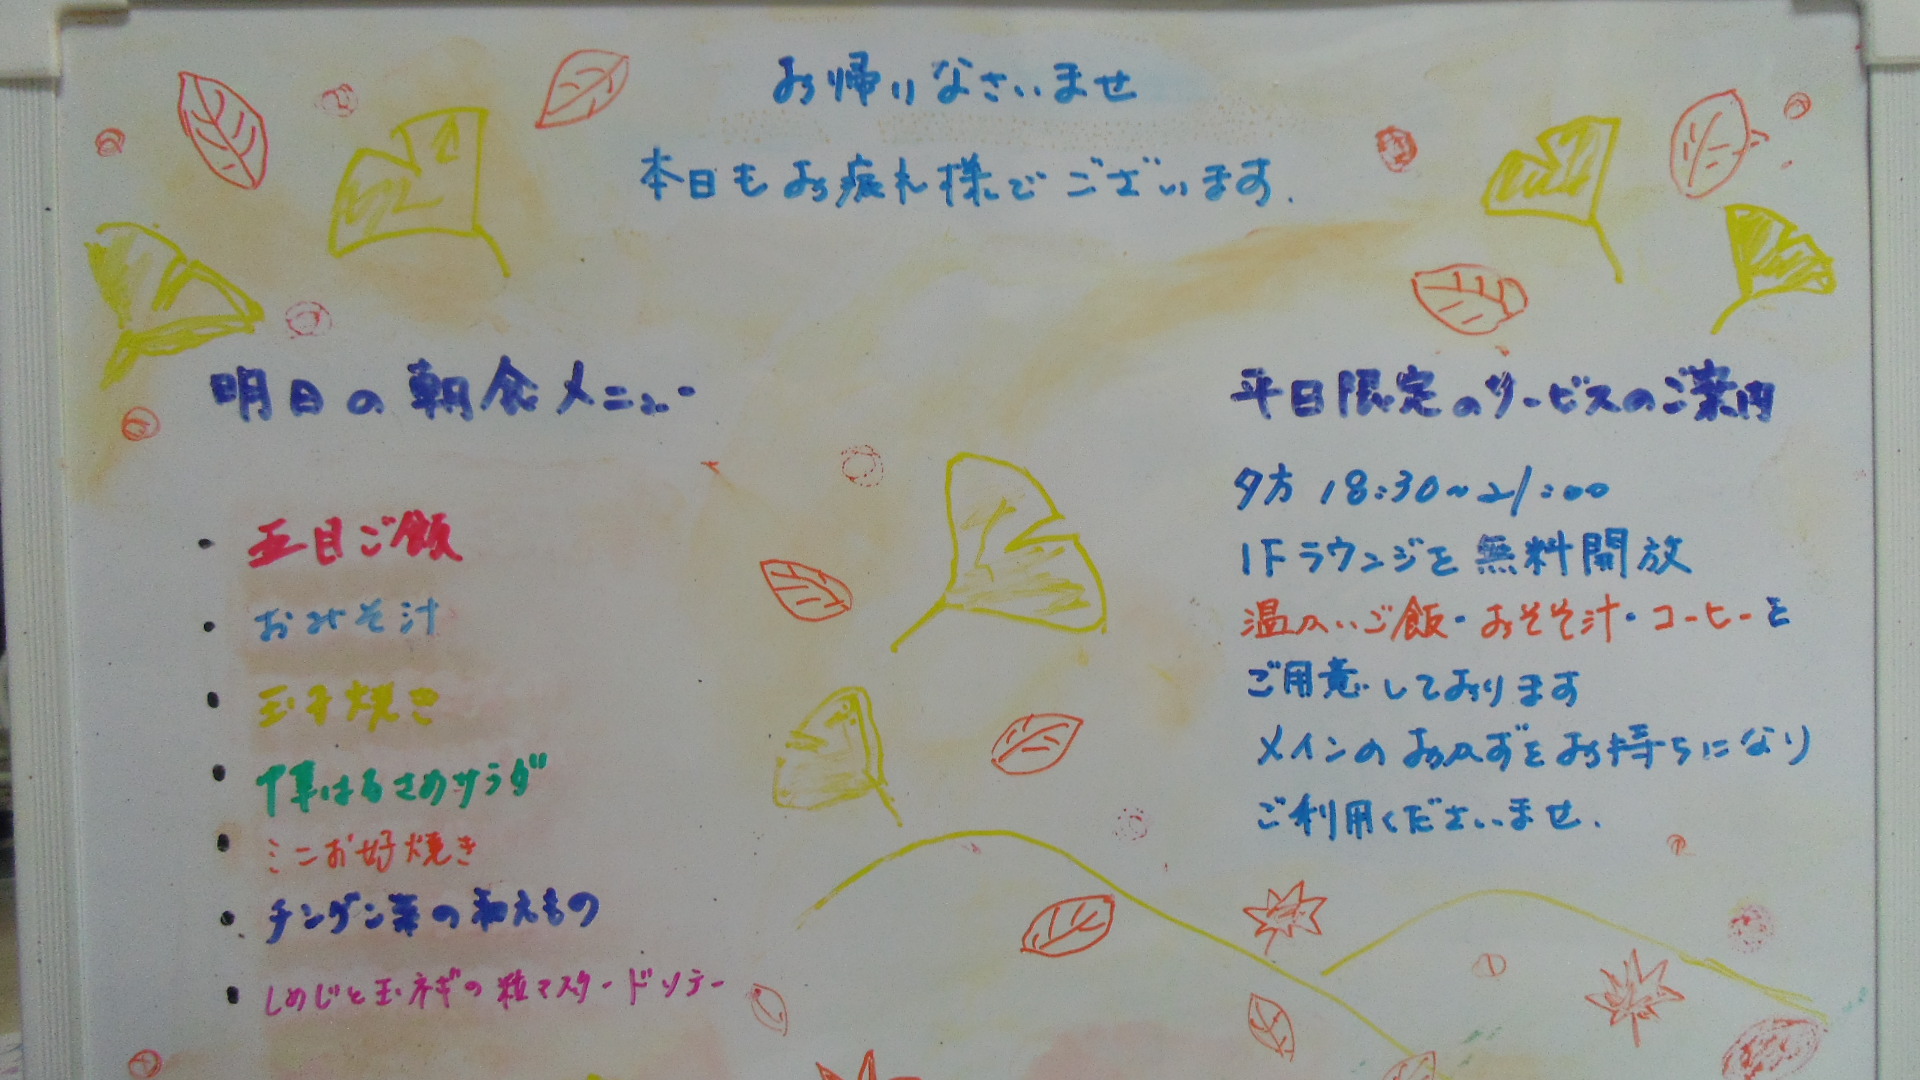 お帰りなさいませ
本日もお疲れ様でございます.
明日の朝食メニュー
・五目ご飯
・おみそ汁
・玉子焼き
・中華はるさめサラダ
・ミニお好焼き
・チンゲン菜の和えもの
・しめじと玉ネギの粒マスタードソテー
平日限定のサービスのご案内
夕方 18:30~21:00
1Fラウンジを無料開放
温かいご飯・おみそ汁・コーヒーを
ご用意しております
メインのおかずをお持ちになり
ご利用くださいませ.